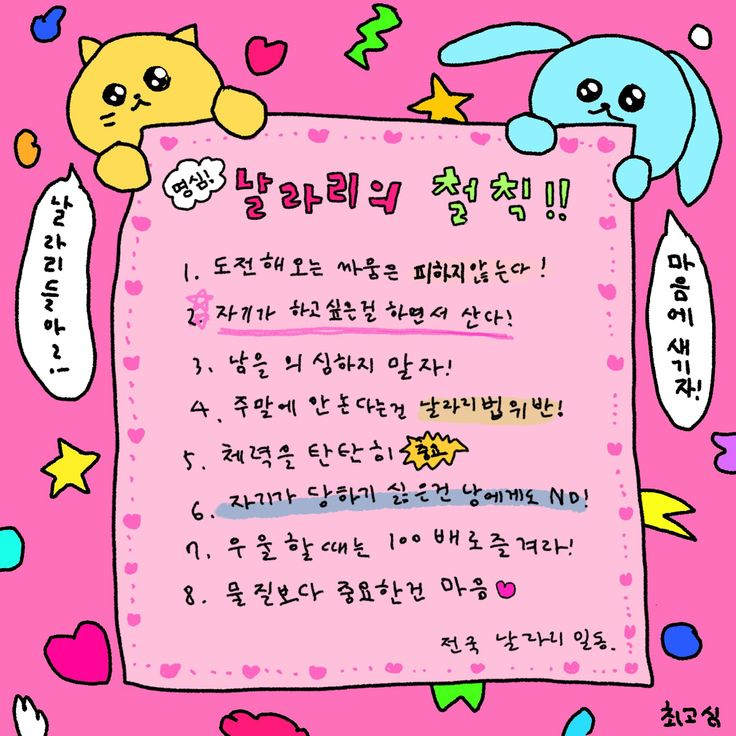 명심!
날라리의 철칙!!
날라리들아!
마음에 새기자!
1. 도전해오는 싸움은 피하지않는다!
2. 자기가 하고싶은걸 하면서 산다!
3. 남을 의심하지 말자!
4. 주말에 안논다는건 날라리법위반!
5. 체력을 탄탄히 중요
6. 자기가 당하기 싫은건 남에게도 NO!
7. 우울할때는 100배로즐겨라!
8. 물질보다 중요한건 마음
전국 날라리 일동.
최고심